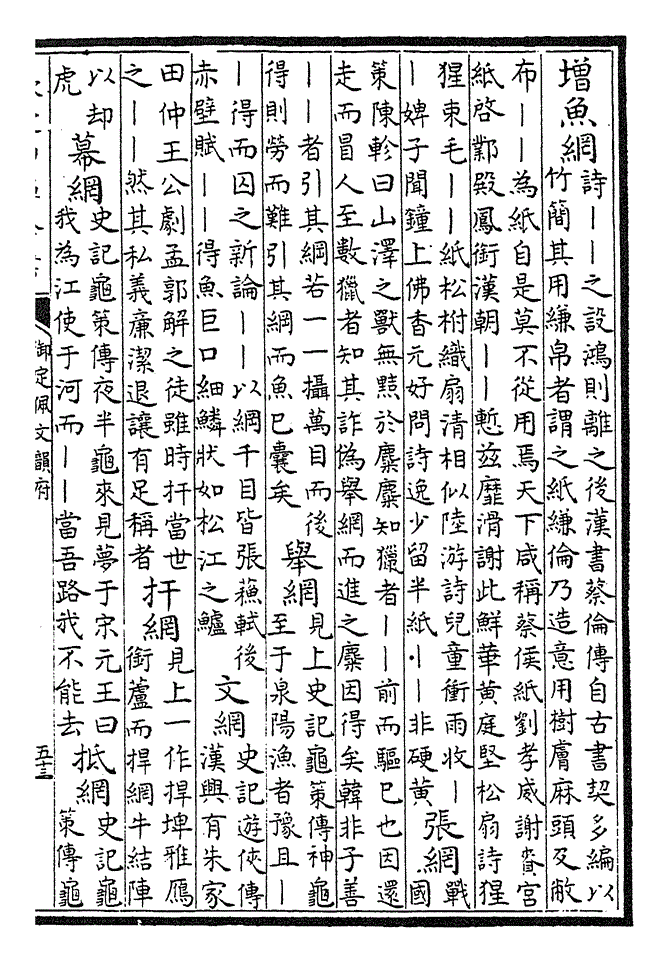 增魚網
詩——之設鴻則離之後漢書蔡倫傳自古書契多編以
竹簡其用縑帛者謂之紙縑倫乃造意用樹膚麻頭及敝
布——為紙自是莫不從用焉天下咸稱蔡侯紙劉孝威謝賚宫
紙啓鄴殿鳳銜漢朝——慙兹靡滑謝此鮮華黄庭堅松扇詩猩
猩束毛——紙松柎織扇清相似陸游詩兒童衝雨收—
—婢子聞鐘上佛香元好問詩逸少留半紙——非硬黄
張網
戰
國
策陳軫曰山澤之獸無黠於麋麋知獵者——前而驅已也因還
走而冒人至數獵者知其詐偽舉網而進之麋因得矣韓非子善
——者引其綱若一一攝萬目而後
得則勞而難引其綱而魚已囊矣
舉網
見上史記龜策傳神龜
至于泉陽漁者豫且—
—得而囚之新論——以綱千目皆張蘓軾後
赤壁賦——得魚巨口細鱗狀如松江之鱸
文網
史記遊俠傳
漢興有朱家
田仲王公劇孟郭解之徒雖時扞當世
之——然其私義廉潔退讓有足稱者
扞網
見上一作捍埤雅鴈
銜蘆而捍網牛結陣
以却
虎
幕網
史記龜策傳夜半龜來見夢于宋元王曰
我為江使于河而——當吾路我不能去
抵網
史記龜
策傳龜
御定佩文韻府
五十三